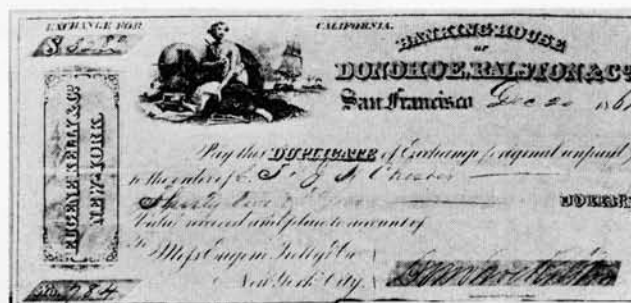 EXCHANGE FOR
CALIFORNIA.
BANKING HOUSE
OF
DONOHOE, RALSTON & Co
San Francisco Dec 20 186
EUGENE KELLY & Co
NEW-YORK.
Pay this DUPLICATE of Exchange (original unpaid)
to the order of J
DOLLARS
Value received and place to account of
To Messrs Eugene Kelly & Co
New York City.
Donohoe Ralston
No. 784